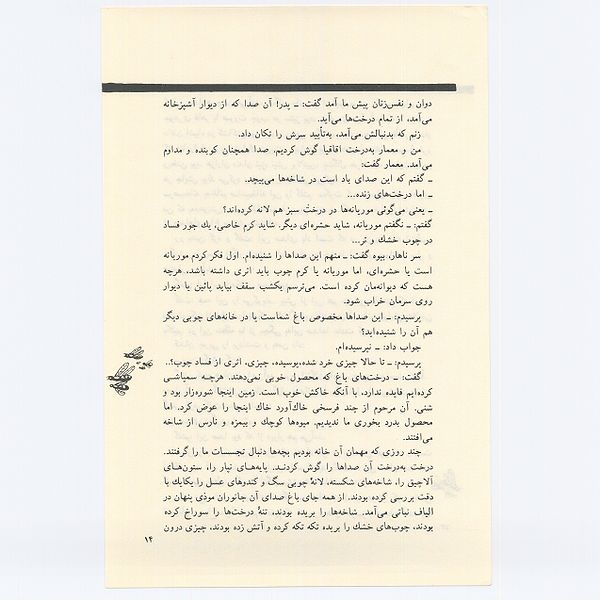 دوان و نفس‌زنان پیش ما آمد گفت: ــ پدر! آن صدا که از دیوار آشپزخانه
می‌آمد، از تمام درخت‌ها می‌آید.
زنم که بدنبالش می‌آمد، به‌تأیید سرش را تکان داد.
من و معمار به‌درخت اقاقیا گوش کردیم. صدا همچنان کوبنده و مداوم
می‌آمد. معمار گفت:
ــ گفتم که این صدای باد است در شاخه‌ها می‌پیچد.
ــ اما درخت‌های زنده...
ــ یعنی می‌گوئی موریانه‌ها در درختْ سبز هم لانه کرده‌اند؟
گفتم: ــ نگفتم موریانه، شاید حشره‌ای دیگر. شاید کرم خاصی، یك جور فساد
در چوب خشك و تر...
سر ناهار، بیوه گفت: ــ منهم این صداها را شنیده‌ام. اول فکر کردم موریانه
است یا حشره‌ای، اما موریانه یا کرم چوب باید اثری داشته باشد، هرچه
هست که دیوانه‌مان کرده است. می‌ترسم یکشب سقف بیاید پائین یا دیوار
روی سرمان خراب شود.
پرسیدم: ــ این صداها مخصوص باغ شماست یا در خانه‌های چوبی دیگر
هم آن را شنیده‌اید؟
جواب داد: ــ نپرسیده‌ام.
پرسیدم: ــ تا حالا چیزی خرد شده،پوسیده، چیزی، اثری از فساد چوب؟..
گفت: ــ درخت‌های باغ که محصول خوبی نمی‌دهند. هرچــه سمپاشی
کرده‌ایم فایده ندارد، با آنکه خاکش خوب است. زمین اینجا شوره‌زار بود و
شنی. آن مرحوم از چند فرسخی خاك‌آورد خاك اینجا را عوض کرد. اما
محصول بدرد بخوری ما ندیدیم. میوه‌ها کوچك و بیمزه و نارس از شاخه
می‌افتند.
چند روزی که مهمان آن خانه بودیم بچه‌ها دنبال تجسسات ما را گرفتند.
درخت به‌درخت آن صداها را گوش کردنــد. پایه‌هــای نپار را، ستون‌هــای
آلاچیق را، شاخه‌های شکسته. لانهٔ چوبی سگ و کندوهای عسل را یکایك با
دقت بررسی کرده بودند. از همه جای باغ صدای آن جانوران موذی پنهان در
الیاف نباتی می‌آمد. شاخه‌ها را بریده بودند، تنهٔ درخت‌ها را سوراخ کرده
بودند، چوب‌های خشك را بریده تکه تکه کرده و آتش زده بودند، چیزی درون
۱۴